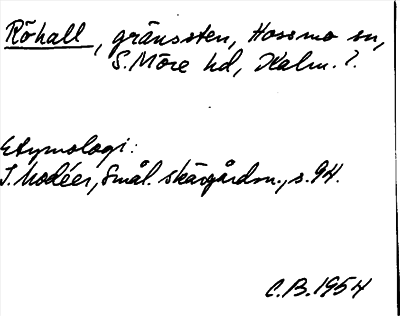 Röhall, gränssten, Hossmo sn,
S. Möre hd, Kalm. l.
Etymologi:
I. Modéer, Smål. skärgårdsn., s. 94.
C.B. 1954